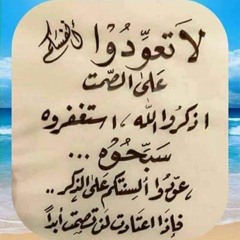 لا تعوِّدُوا أنفسَكم
على الصمت
اذكروا الله ، استغفروه
سبِّحُوه ...
عوِّدُوا ألسنتكم على الذكر ..
فإذا اعتادت لن تصمت أبداً